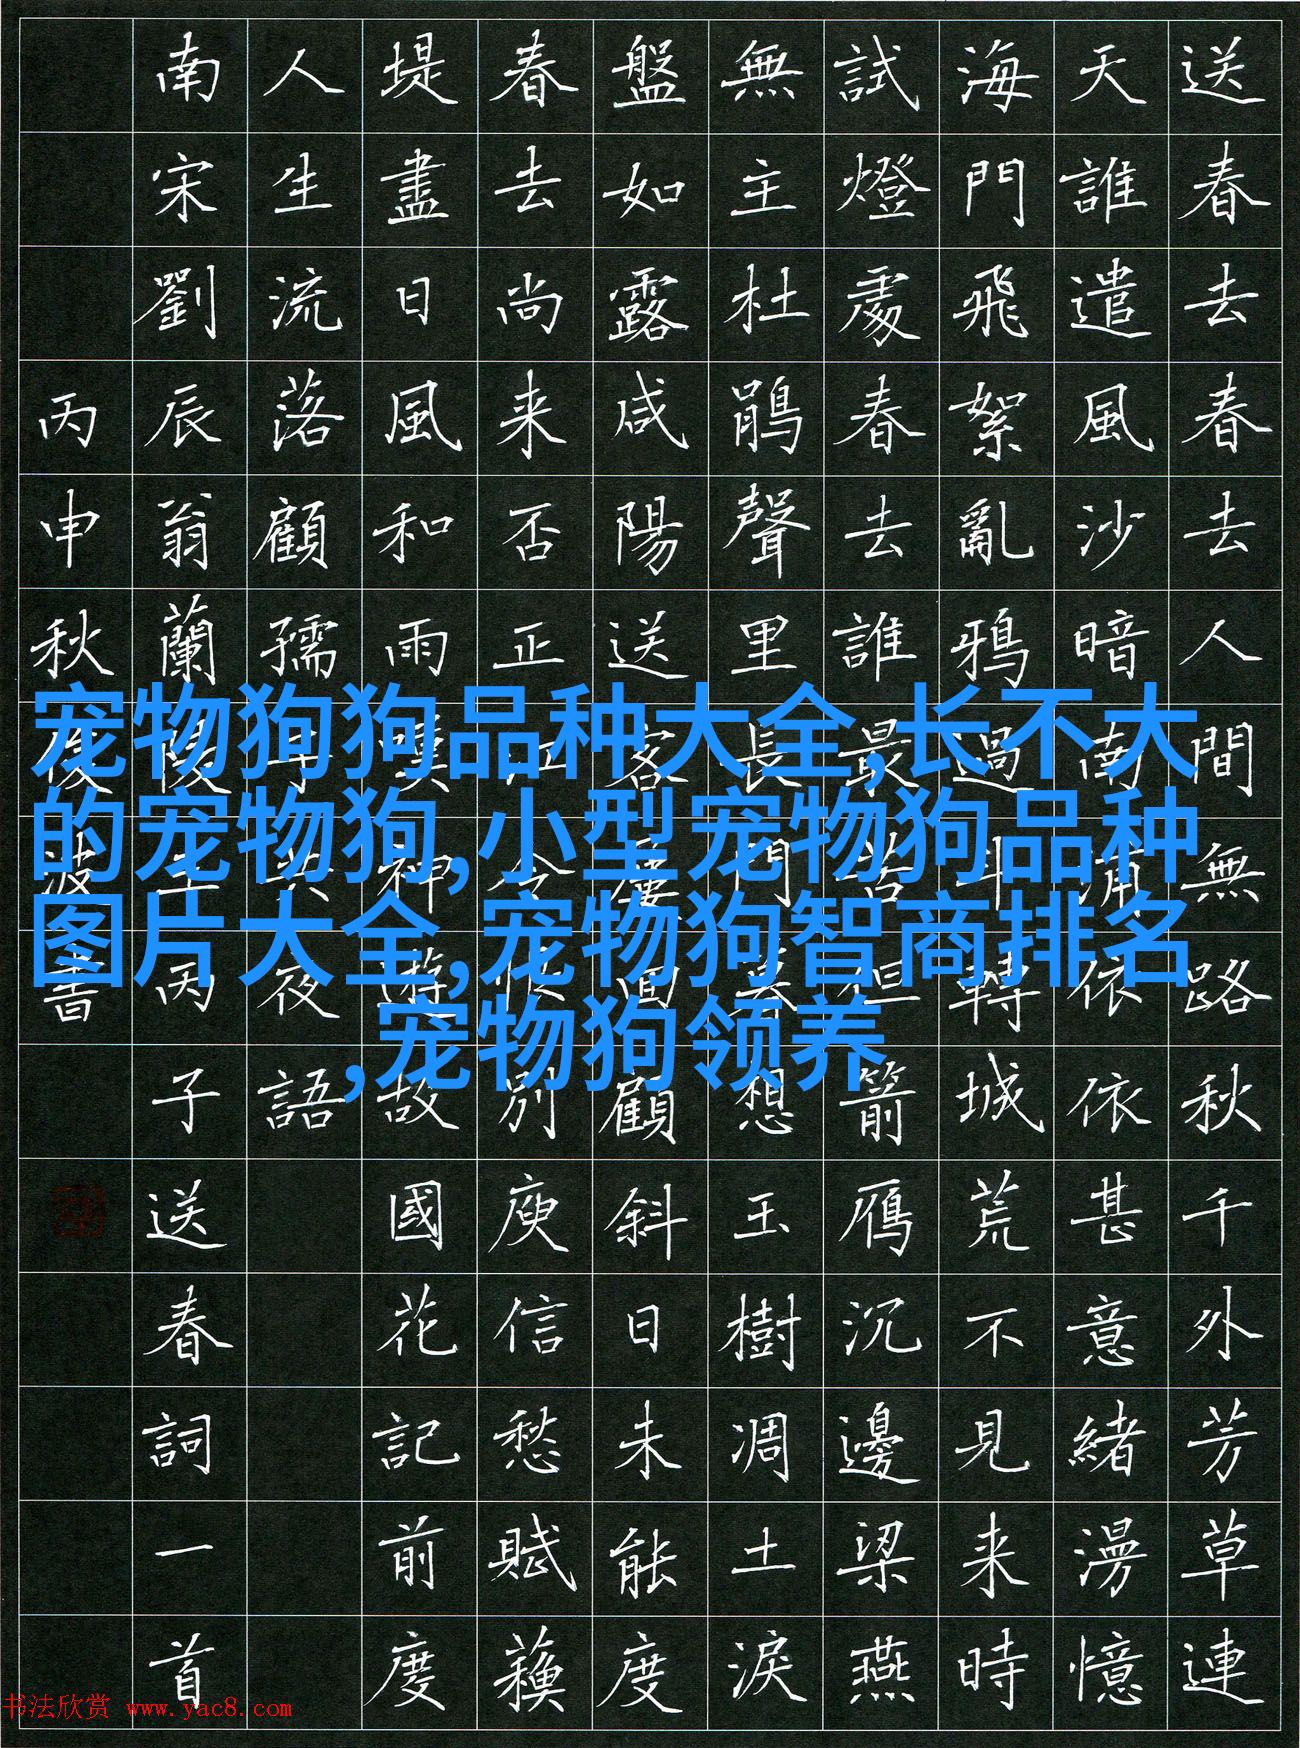 送春去春去人間無路秋千外芳草連
天誰遣風沙暗南浦依依甚意緒漫憶
海門飛絮亂鴉過斗轉城荒不見来時
試燈處春去誰最苦但箭雁沉邊梁燕
無主杜鵑聲里長門暮想玉樹凋土淚
盤如露咸陽送客屢回顧斜日未能度
春去尚来否正江令恨別庾信愁賦蘓
堤盡日風和雨嘆神遊故國花記前度
人生流落顧孺子共夜語
南宋劉辰翁蘭陵王丙子送春詞一首
丙申秋俊波書
宠物狗狗品种大全,长不大
的宠物狗,小型宠物狗品种
图片大全,宠物狗智商排名
,宠物狗领养
书法欣赏 www.yac8.com